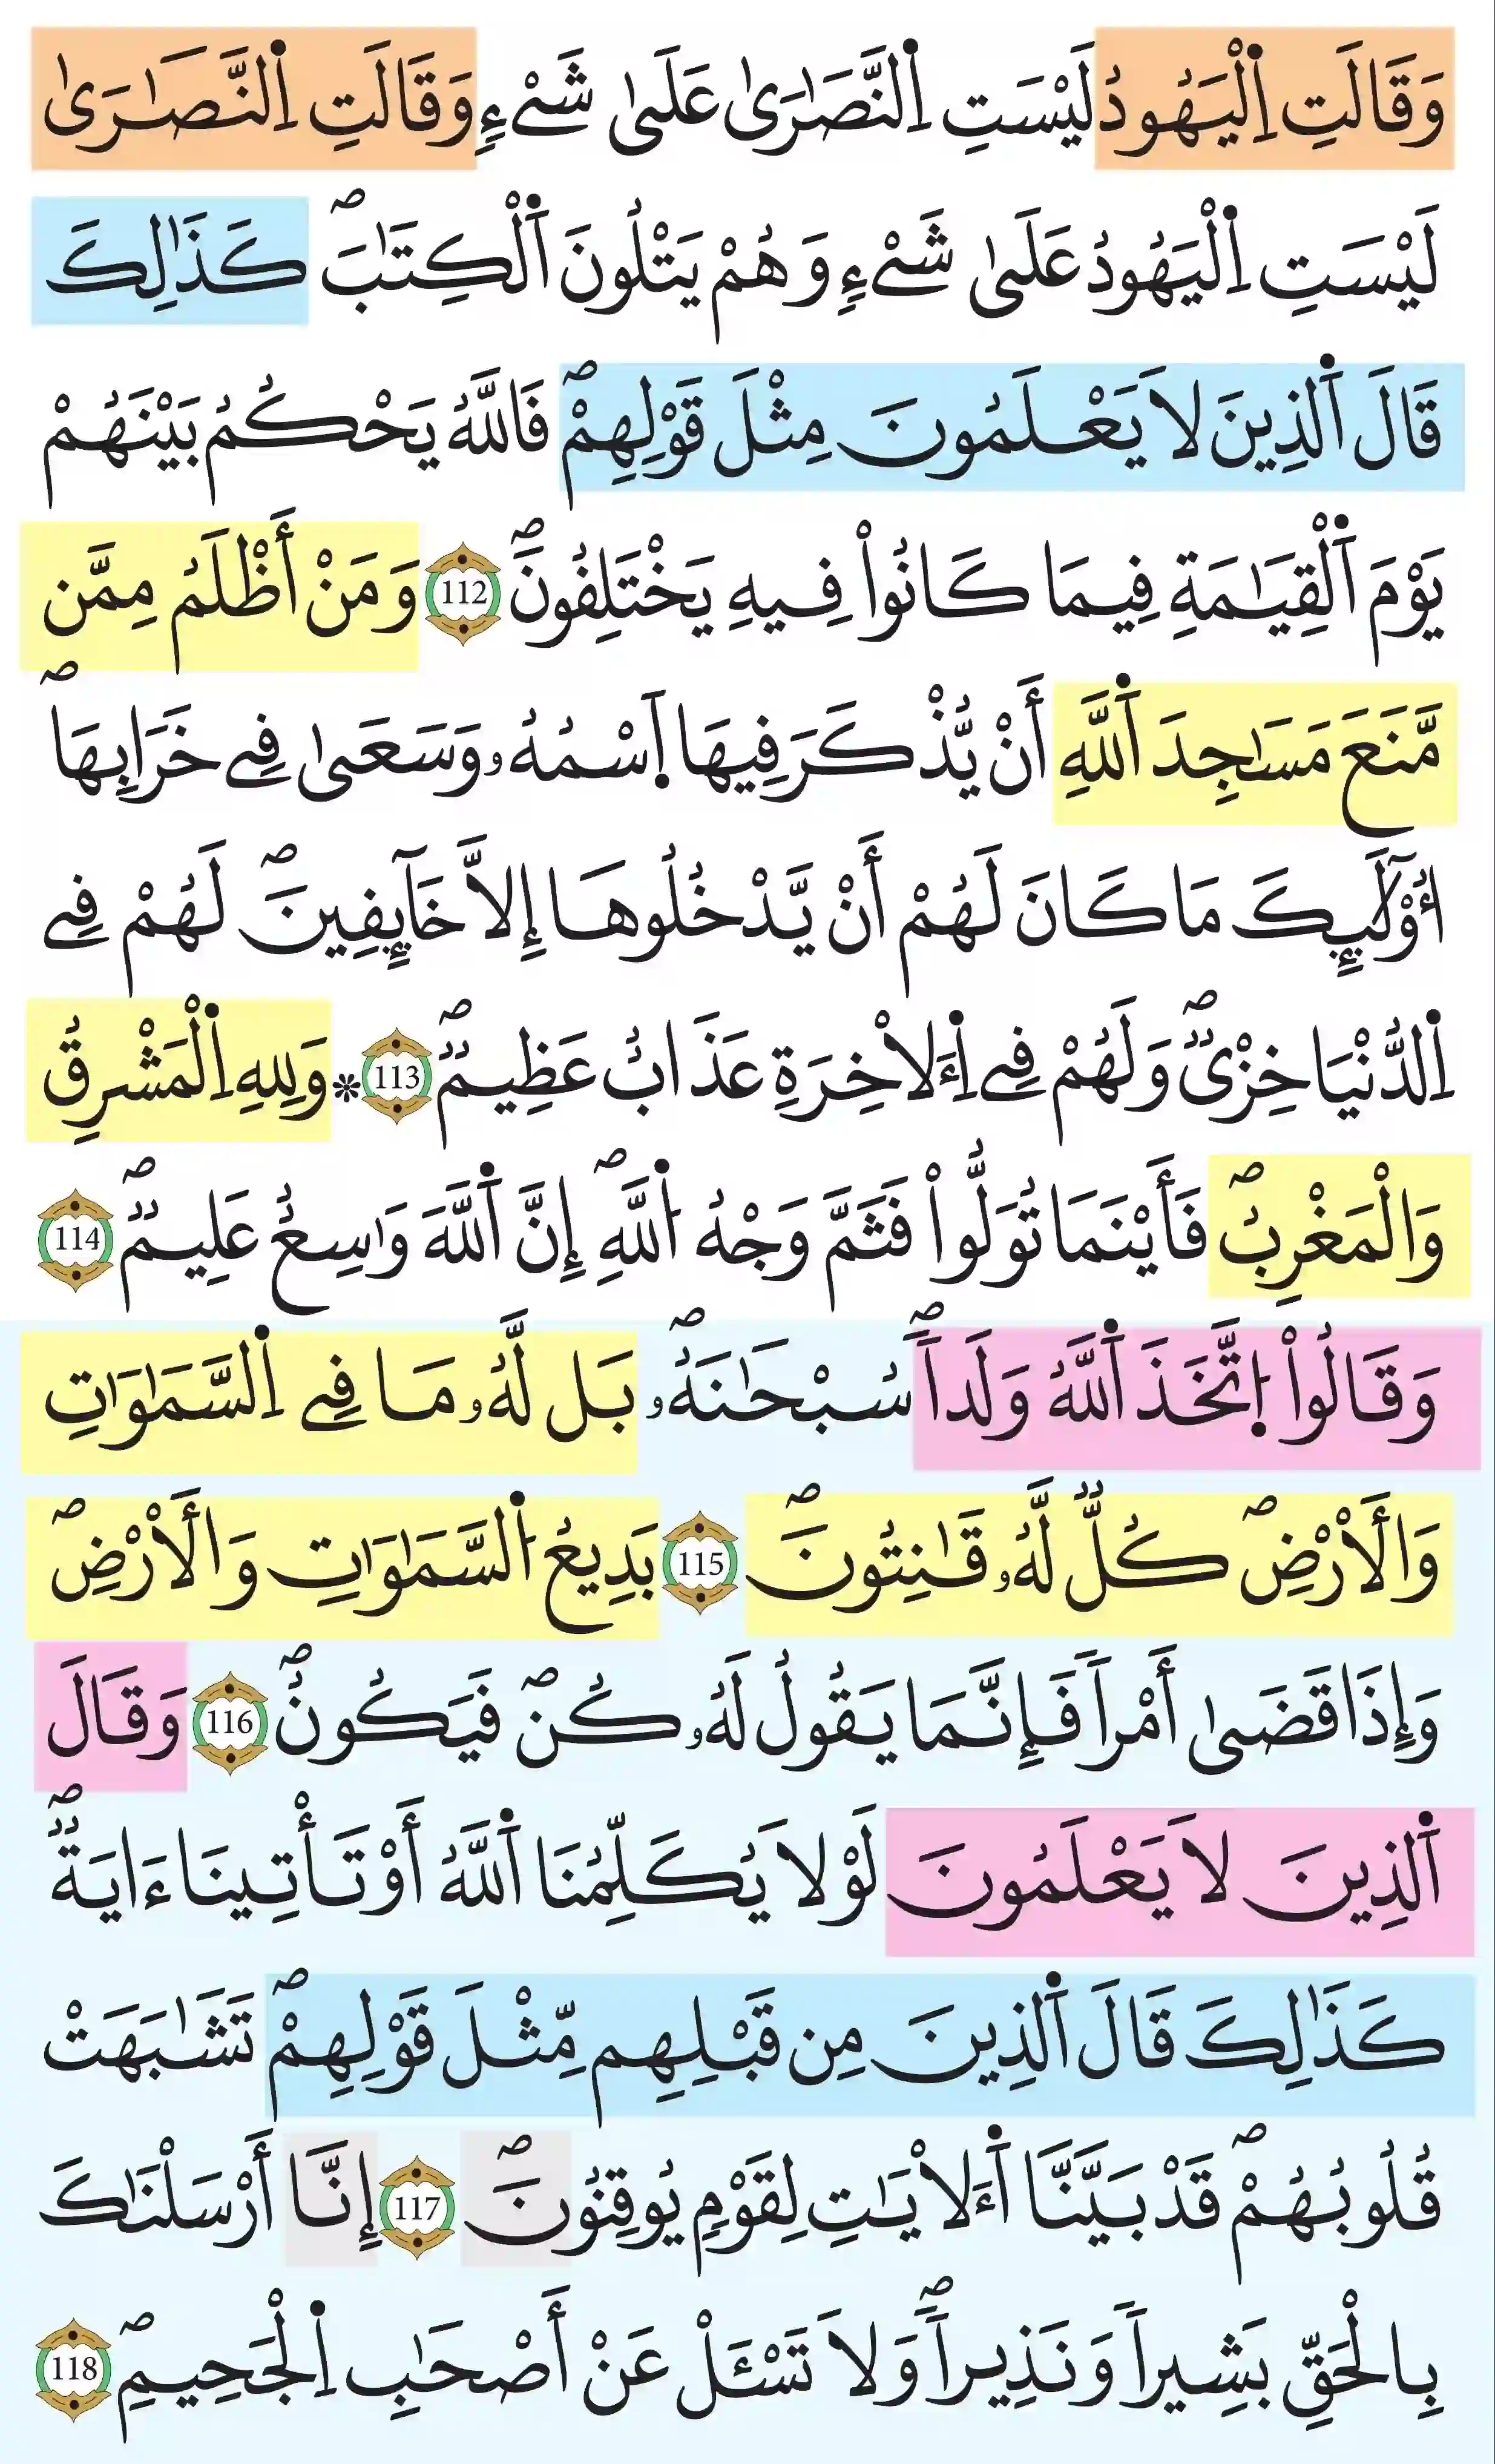 وَقَالَتِ اِ۬لْيَهُودُ لَيْسَتِ اِ۬لنَّصَٰر۪ىٰ عَلَىٰ شَےْءٖ وَقَالَتِ اِ۬لنَّصَٰر۪ىٰ
لَيْسَتِ اِ۬لْيَهُودُ عَلَىٰ شَےْءٖ وَهُمْ يَتْلُونَ اَ۬لْكِتَٰبَۖ كَذَٰلِكَ
قَالَ اَ۬لذِينَ لَا يَعْلَمُونَ مِثْلَ قَوْلِهِمْۖ فَاللَّهُ يَحْكُمُ بَيْنَهُمْ
يَوْمَ اَ۬لْقِيَٰمَةِ فِيمَا كَانُواْ فِيهِ يَخْتَلِفُونَۖ 112 وَمَنْ أَظْلَمُ مِمَّن
مَّنَعَ مَسَٰجِدَ اَ۬للَّهِ أَنْ يُّذْكَرَ فِيهَا اَ۪سْمُهُۥ وَسَعَىٰ فِے خَرَابِهَاۖ
أُوْلَٰٓئِكَ مَا كَانَ لَهُمْ أَنْ يَّدْخُلُوهَا إِلَّا خَآئِفِينَۖ لَهُمْ فِے
اِ۬لدُّنْيَا خِزْيٞۖ وَلَهُمْ فِے اِ۬ءَلَاخِرَةِ عَذَابٌ عَظِيمٞۖ 113 ۞ وَلِلهِ اِ۬لْمَشْرِقُ
وَالْمَغْرِبُۖ فَأَيْنَمَا تُوَلُّواْ فَثَمَّ وَجْهُ اُ۬للَّهِۖ إِنَّ اَ۬للَّهَ وَٰسِعٌ عَلِيمٞۖ 114
وَقَالُواْ اُ۪تَّخَذَ اَ۬للَّهُ وَلَداٗۖ سُبْحَٰنَهُۥۖ بَل لَّهُۥ مَا فِے اِ۬لسَّمَٰوَٰتِ
وَالْأَرْضِۖ كُلّٞ لَّهُۥ قَٰنِتُونَۖ 115 بَدِيعُ اُ۬لسَّمَٰوَٰتِ وَالْأَرْضِۖ
وَإِذَا قَضَىٰ أَمْراٗ فَإِنَّمَا يَقُولُ لَهُۥ كُنۖ فَيَكُونُۖ 116 وَقَالَ
اَ۬لذِينَ لَا يَعْلَمُونَ لَوْلَا يُكَلِّمُنَا اَ۬للَّهُ أَوْ تَأْتِينَا ءَايَةٞۖ
كَذَٰلِكَ قَالَ اَ۬لذِينَ مِن قَبْلِهِم مِّثْلَ قَوْلِهِمْۖ تَشَٰبَهَتْ
قُلُوبُهُمْۖ قَدْ بَيَّنَّا اَ۬ءَلَايَٰتِ لِقَوْمٖ يُوقِنُونَۖ 117 إِنَّا أَرْسَلْنَٰكَ
بِالْحَقِّ بَشِيراٗ وَنَذِيراٗۖ وَلَا تَسْـَٔلْ عَنْ أَصْحَٰبِ اِ۬لْجَحِيمِۖ 118